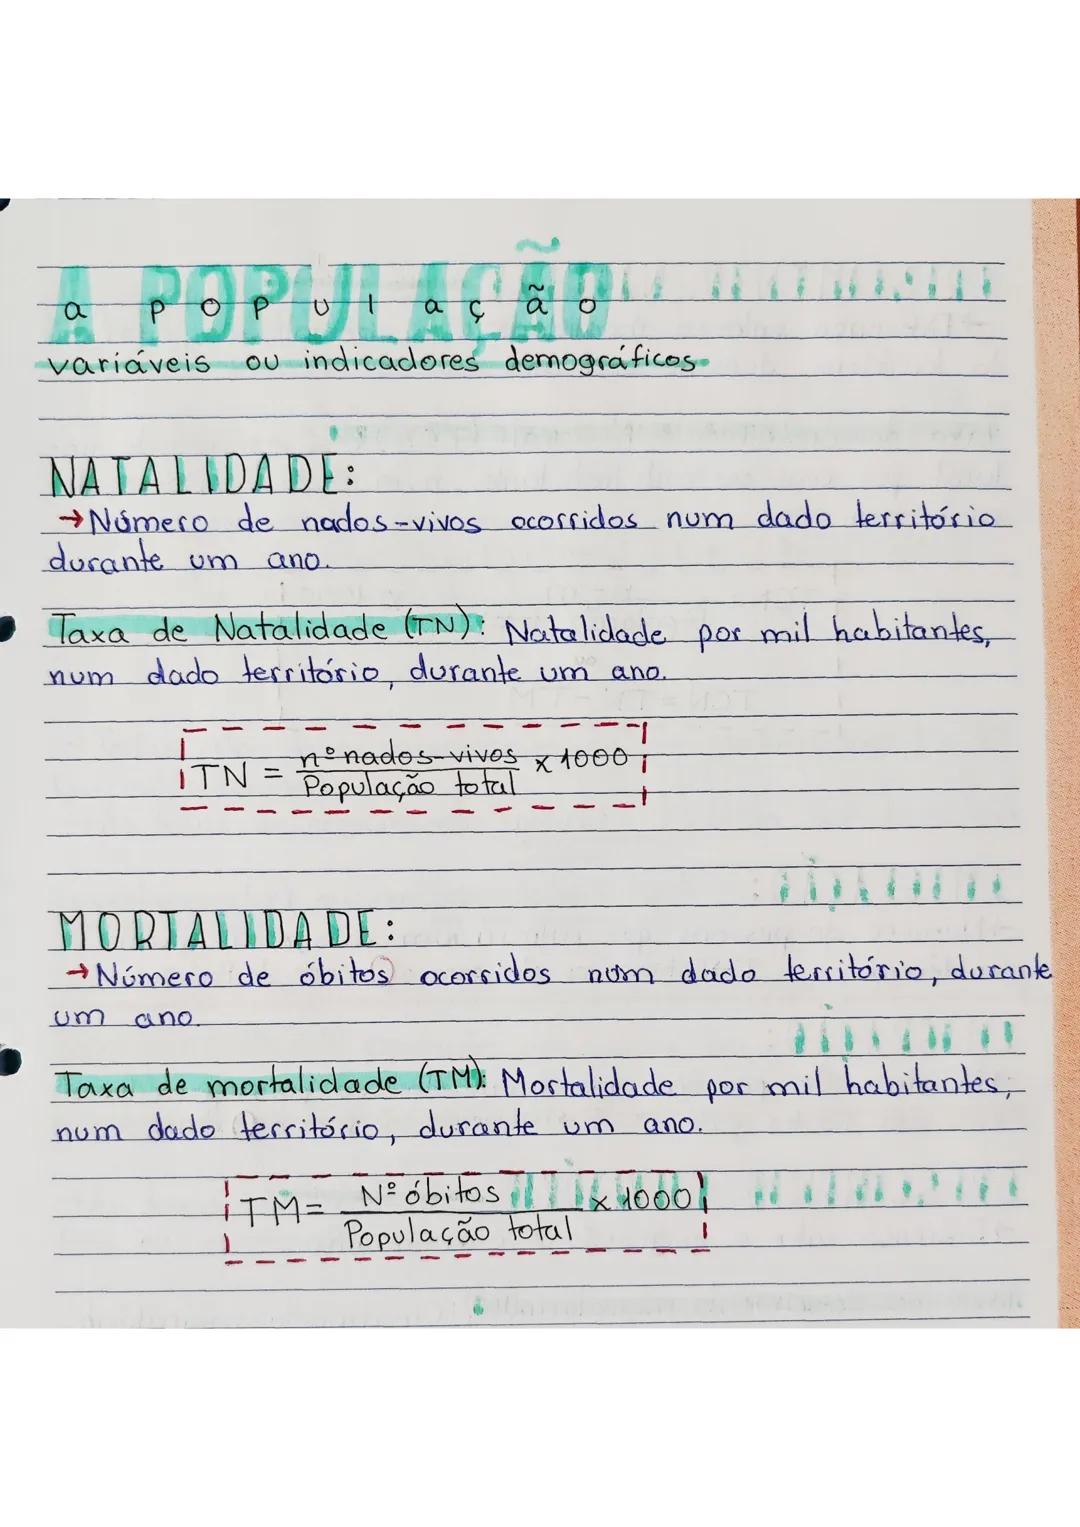 A POPULAÇÃO
a população
variáveis ou indicadores demográficos
NATALIDADE:
→Número de nados-vivos ocorridos num dado território
durante um ano.
Taxa de Natalidade (TN): Natalidade por mil habitantes,
num dado território, durante um ano.
TN = nº nados-vivos x 1000
População total
MORTALIDADE:
→Número de óbitos ocorridos num dado território, durante
um ano.
Taxa de mortalidade (TM): Mortalidade por mil habitantes,
num dado território, durante um ano.
TM= Nº óbitos x 1000
População total